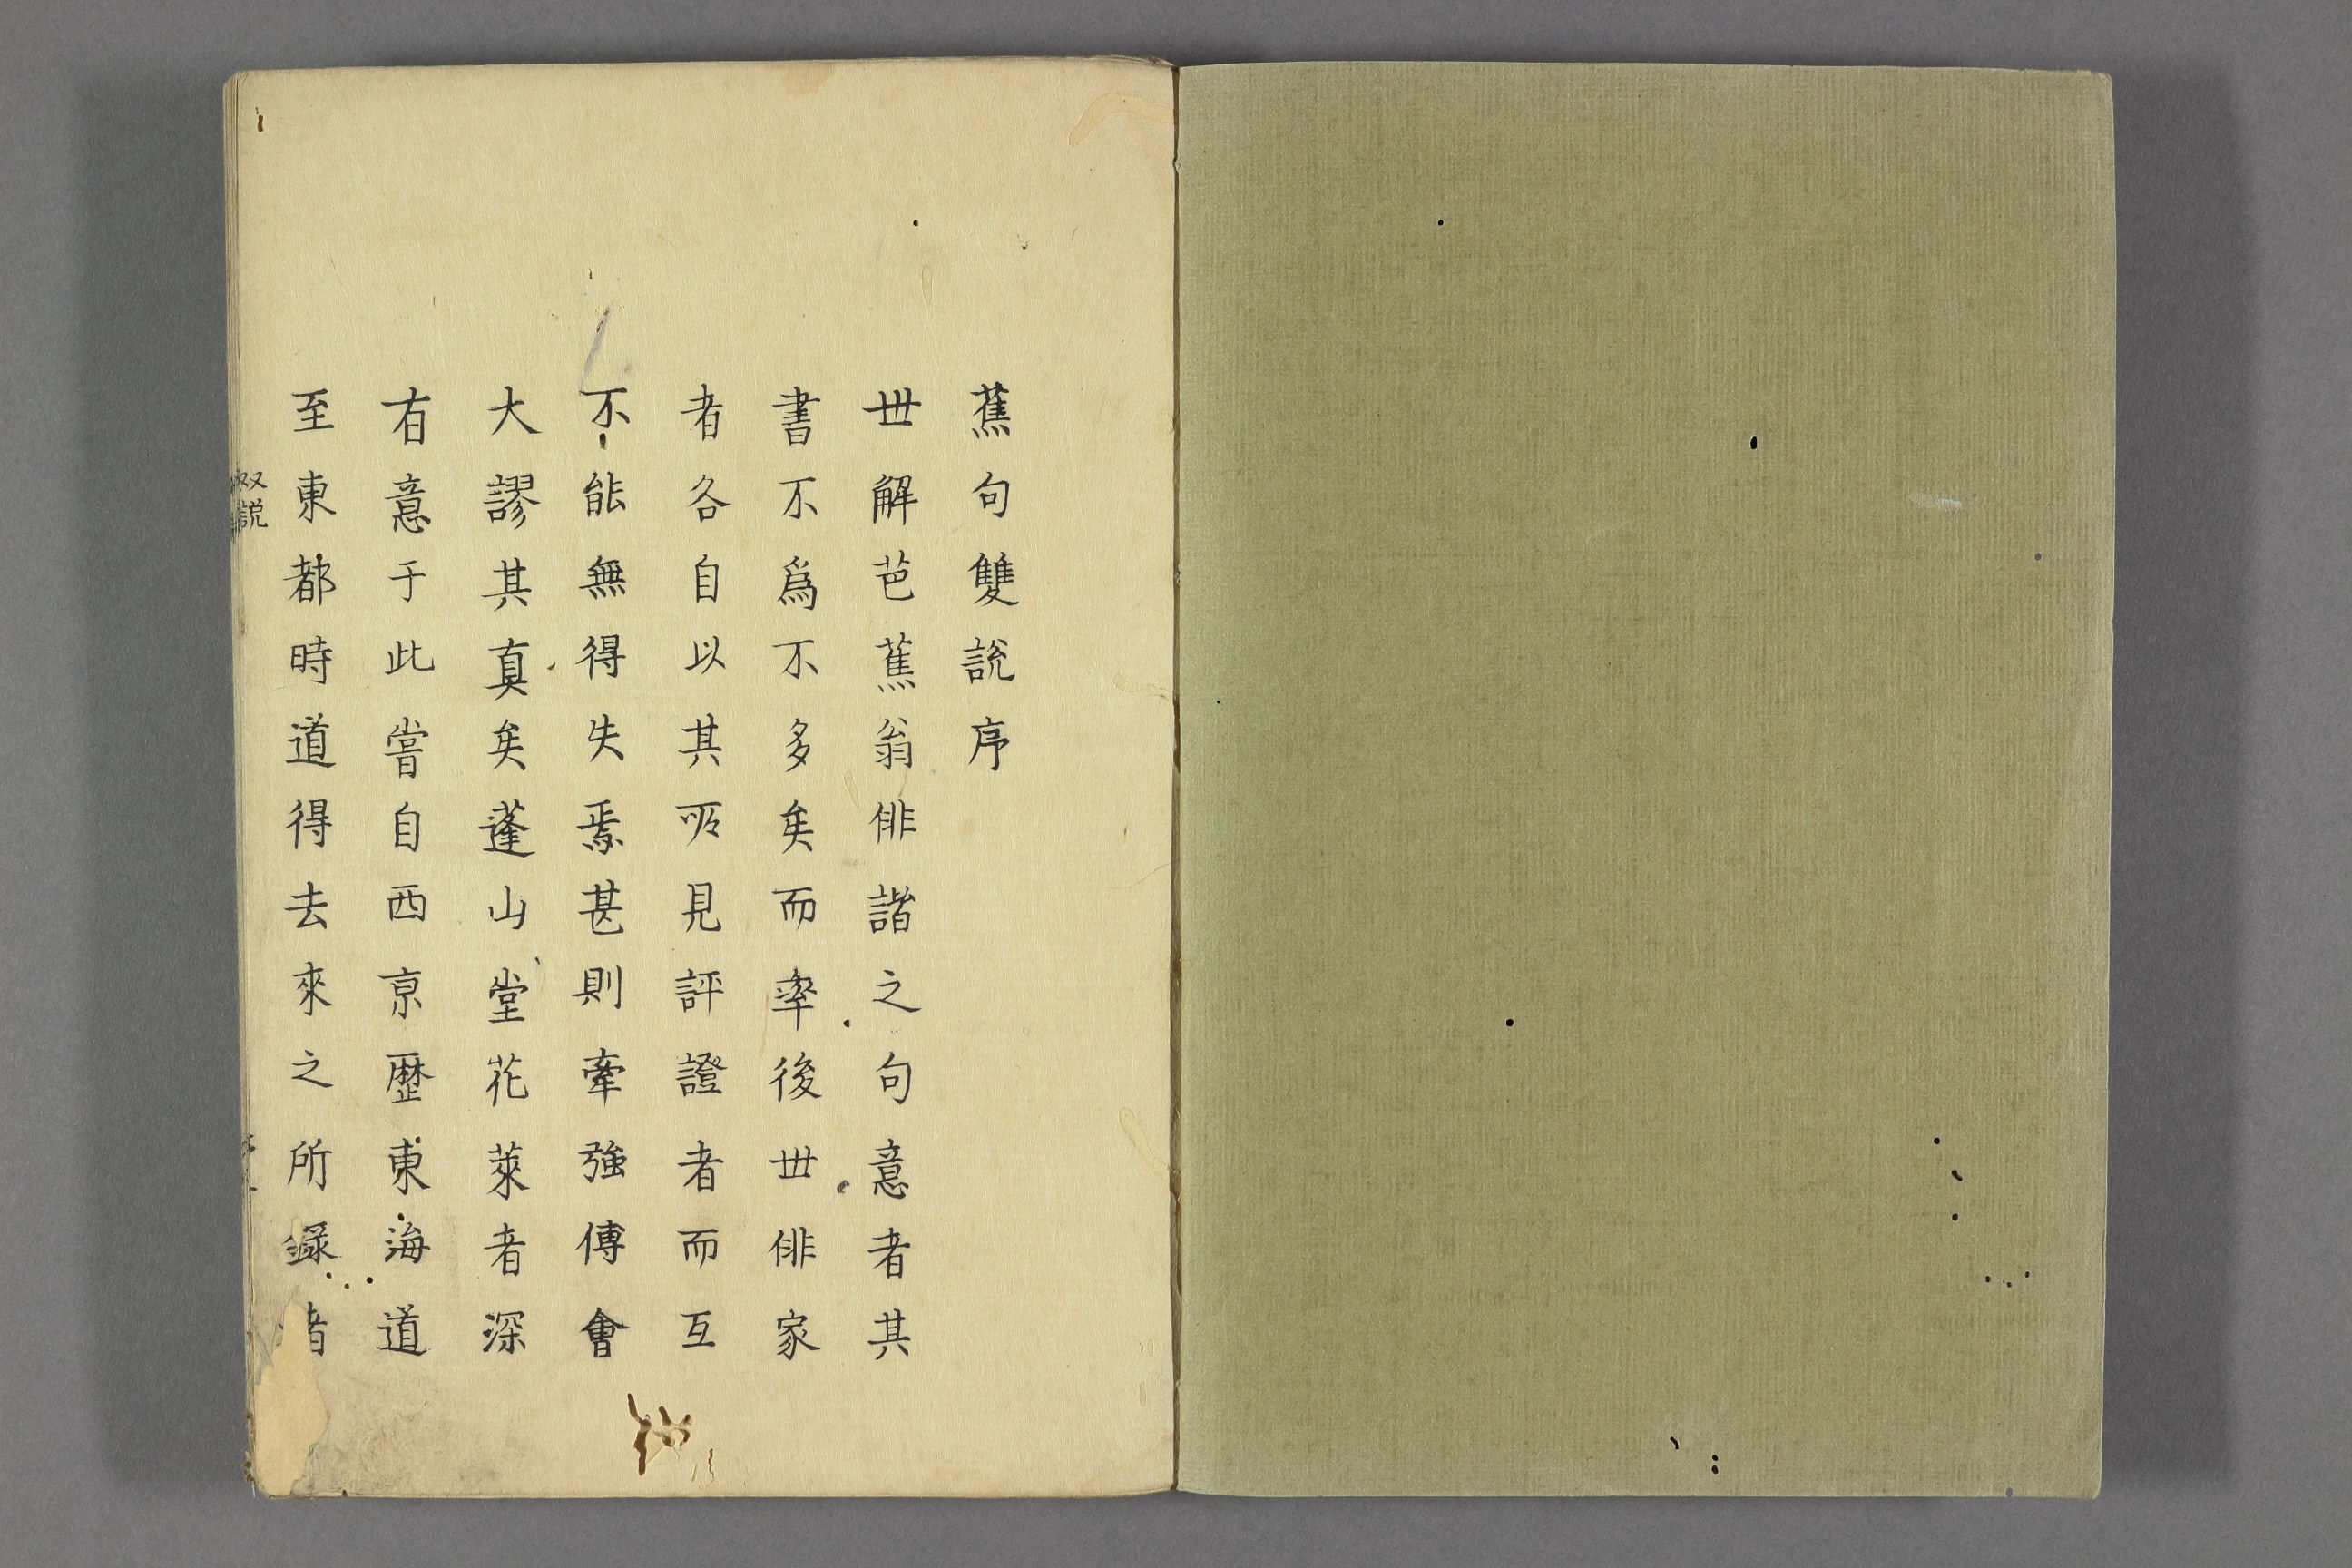 蕉句雙說序
世解芭蕉翁俳諧之句意者其
書不爲不多矣而率後世俳家
者各自以其所見評證者而互
不能無得失焉甚則牽強傅會
大謬其真矣蓬山堂花萊者深
有意于此嘗自西京歷東海道
至東都時道得去來之所錄者
双説